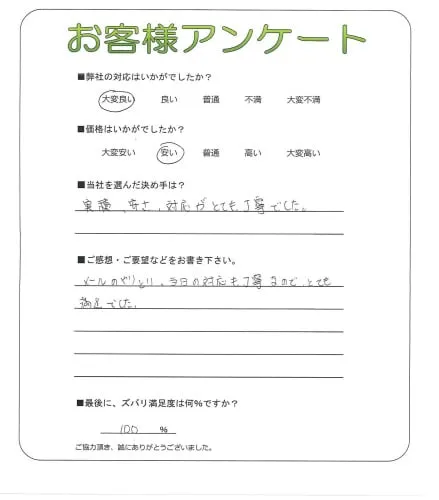 お客様アンケート
■弊社の対応はいかがでしたか?
大変良い 良い 普通 不満 大変不満
■価格はいかがでしたか?
大変安い 安い 普通 高い 大変高い
■当社を選んだ決め手は?
実績、安さ、対応がとても丁寧でした。
■ご感想・ご要望などをお書き下さい。
メールのやりとり、今日の対応も丁寧なので、とても
満足でした。
■最後に、ズバリ満足度は何%ですか?
100 %
ご協力頂き、誠にありがとうございました。